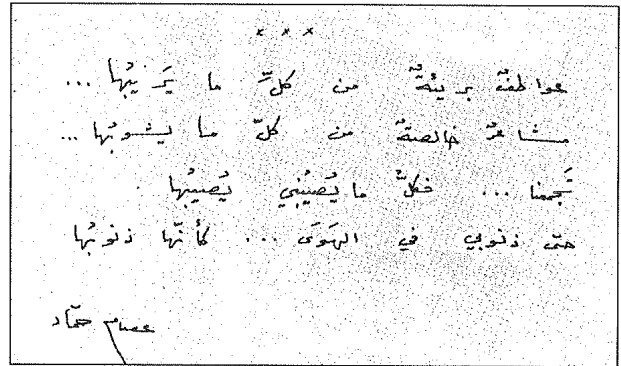 × × ×
عواطفٌ بريئةٌ من كلِّ ما يَريبُها ...
مشاعرٌ خالصةٌ من كلّ ما يشوبُها ...
تَجمعنا ... فكلُّ ما يُصيبُني يُصيبُها
حتى ذنوبي في الهَوَى ... كأنّها ذنوبُها
عصام حمّاد